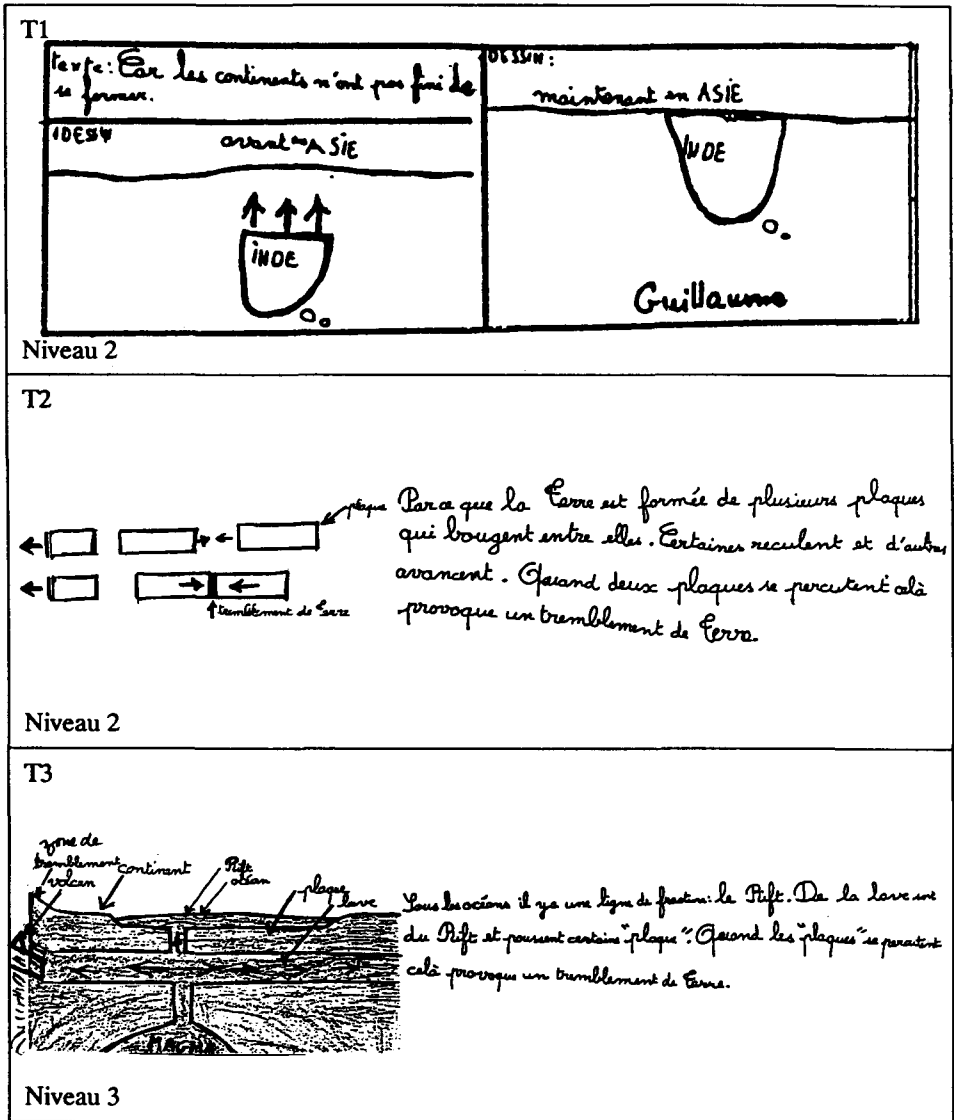 T1
texte: Car les continents n'ont pas fini de
se former.
DESSIN:
maintenant en ASIE
avant en ASIE
INDE
INDE
Guillaume
Niveau 2
T2
plaque
tremblement de Terre
Parce que la Terre est formée de plusieurs plaques
qui bougent entre elles. Certaines reculent et d'autres
avancent. Quand deux plaques se percutent celà
provoque un tremblement de Terre.
Niveau 2
T3
zone de
tremblement
volcan
continent
Rift
océan
plaque
lave
MAGMA
Sous les océans il y a une ligne de : le Rift. De la lave
du Rift et poussent certains "plaque". Quand les "plaques" se percutent
celà provoque un tremblement de Terre.
Niveau 3